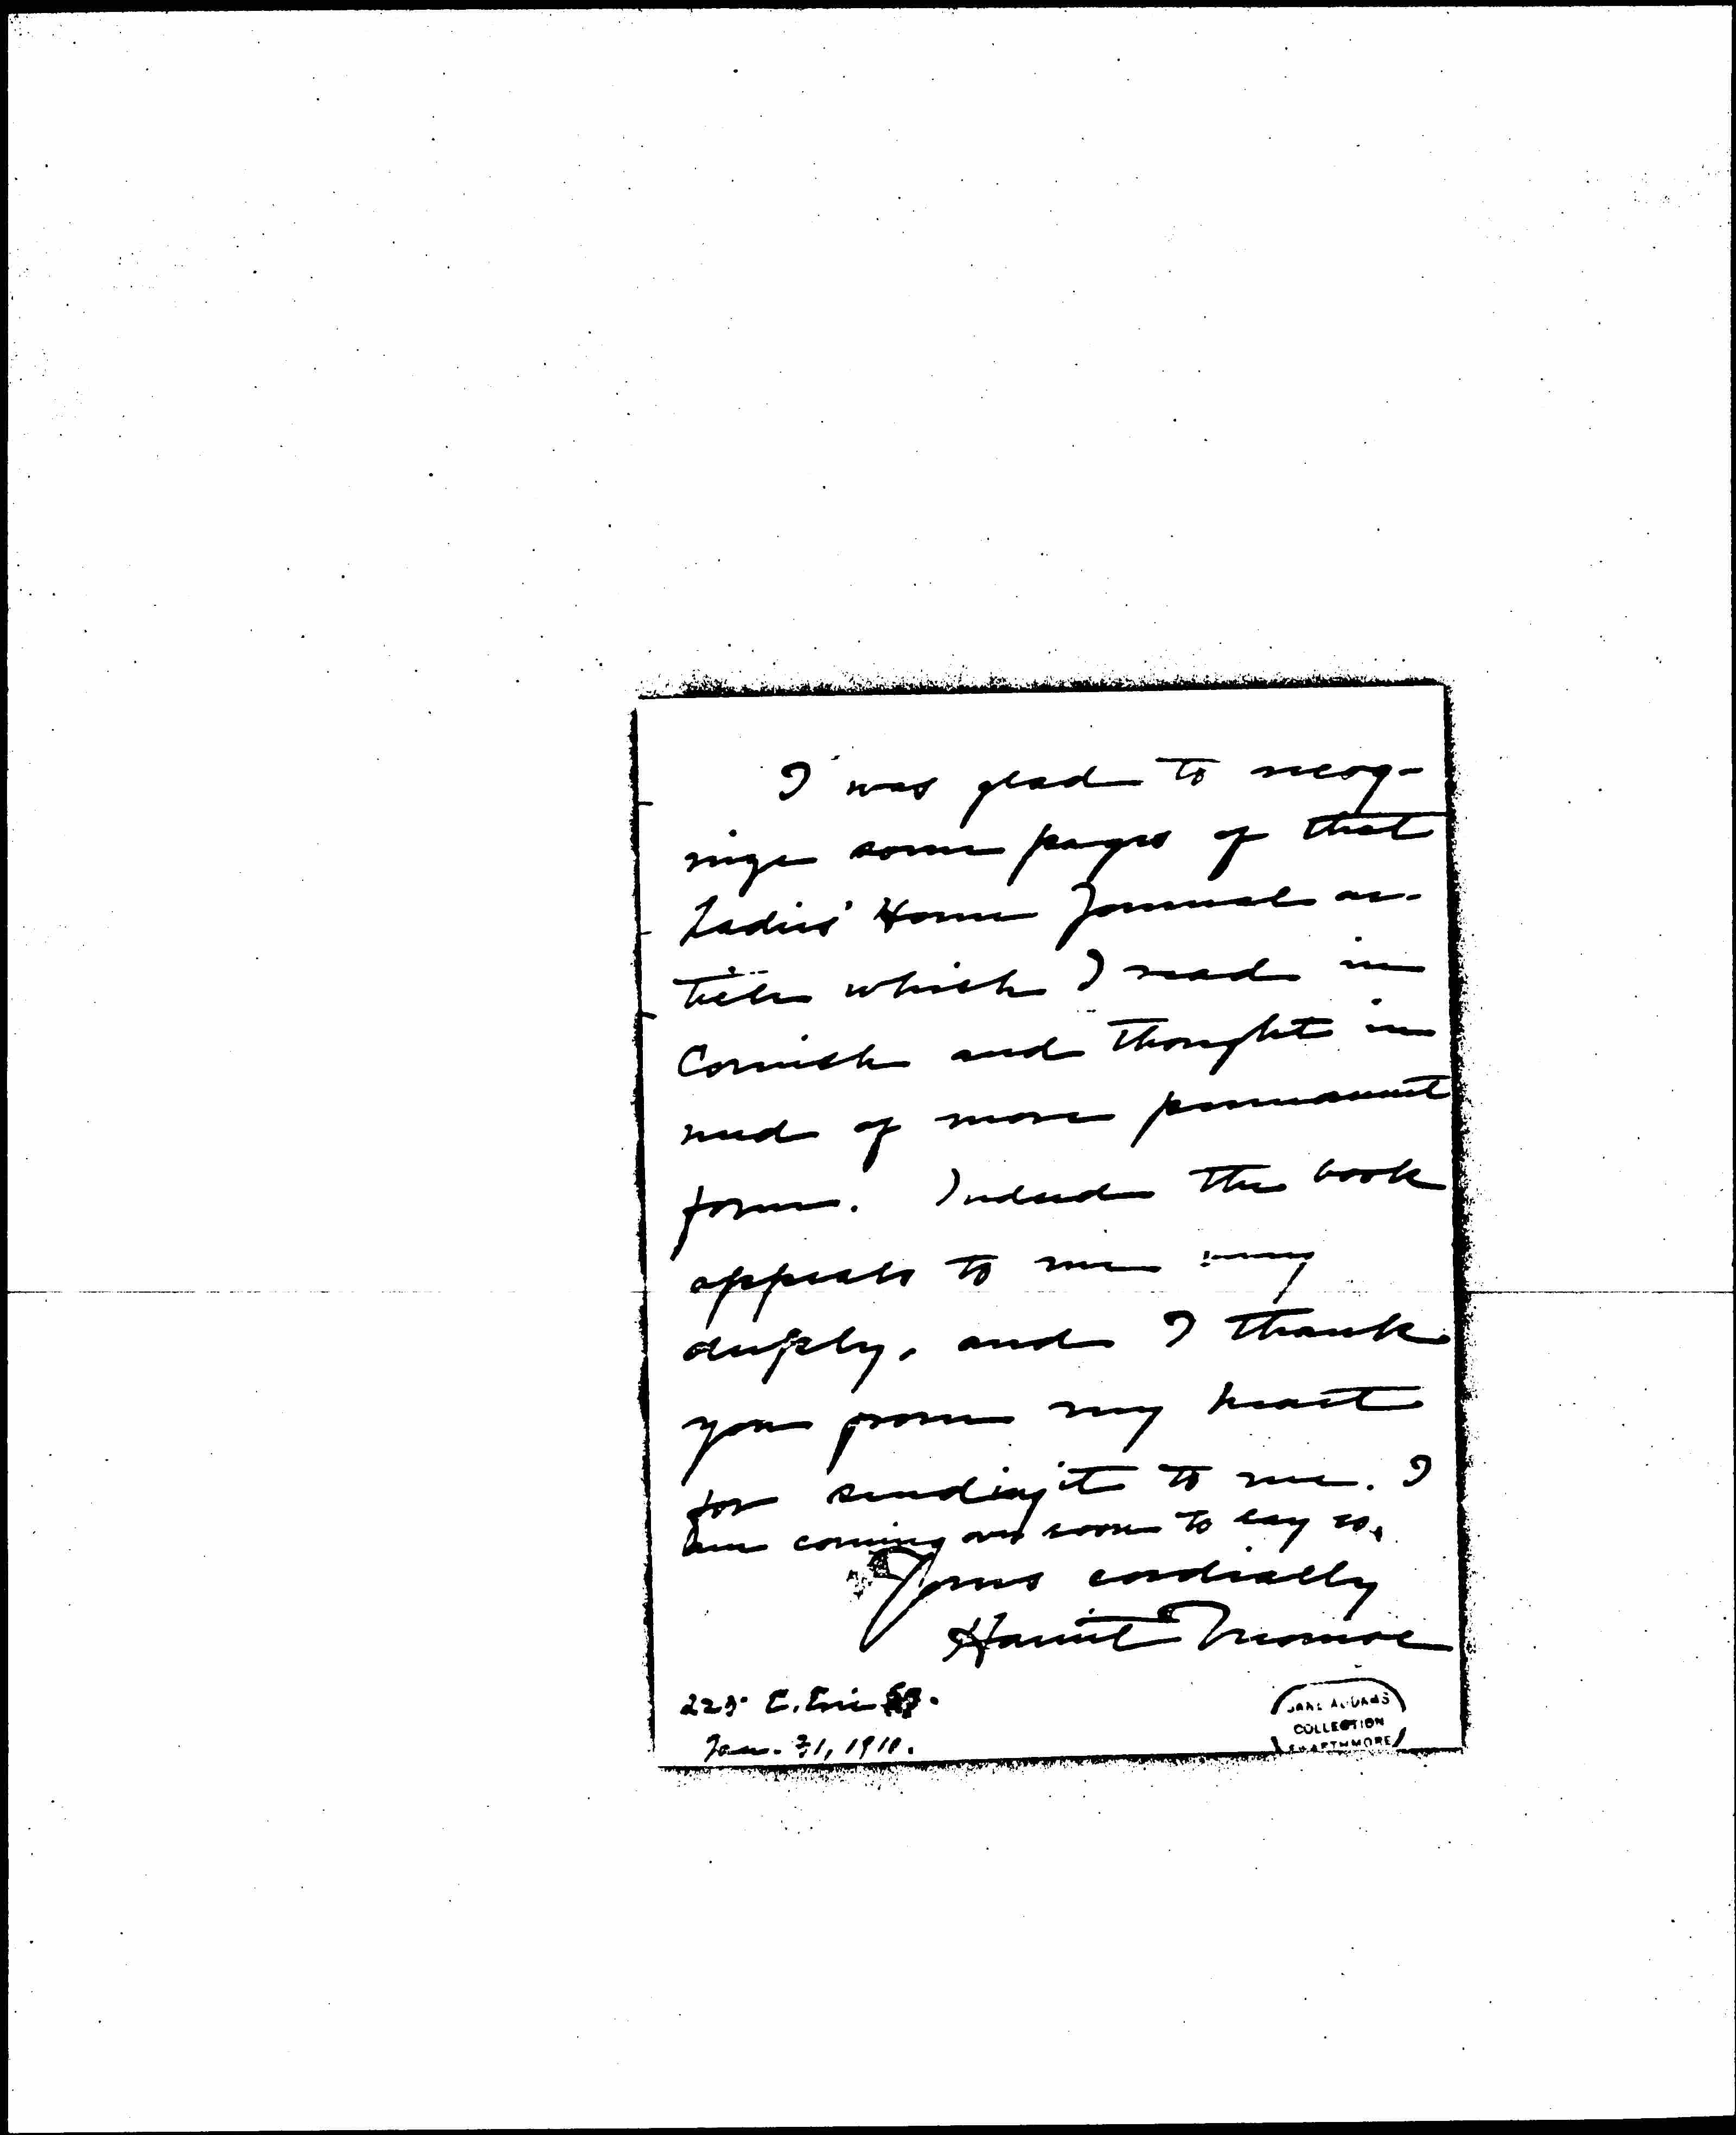 I was glad to recog-
nize some pages of that
Ladies' Home Journal ar-
ticle which I read in
Cornish and thought in
need of more permanent
form. Indeed the book
appeals to me very
deeply, and I thank
you from my heart
for sending it to me. I
am coming over soon to say so.
Yours cordially
Harriet Monroe
E. Erie St.
Jan. 31, 1910.
JANE ADDAMS
COLLECTION
SWARTHMORE